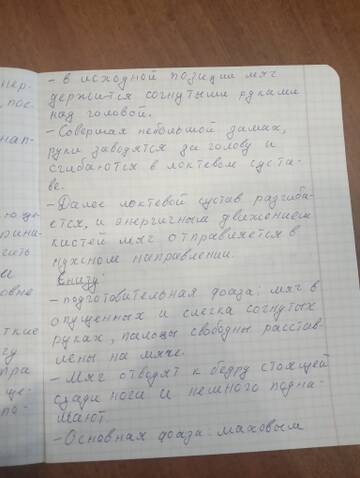 нер-
пос
нап-
ую щи
рина-
сить
ы
овне
ткие
гу
пра
ще-
по-
- В исходной позиции мяч
держится согнутыми руками
над головой.
- Совершая небольшой замах,
руки заводятся за голову и
сгибаются в локтевом суста-
ве.
- Далее локтевой сустав разгиба-
ется, и энергичным движением
кистей мяч отправляется в
нужном направлении.
Снизу:
- подготовительная фаза: мяч в
опущенных и слегка согнутых
руках, пальцы свободны расстав-
лены на мяче.
- Мяч отводят к бедру стоящей
сзади ноги и немного подни-
мают.
- Основная фаза: маховым